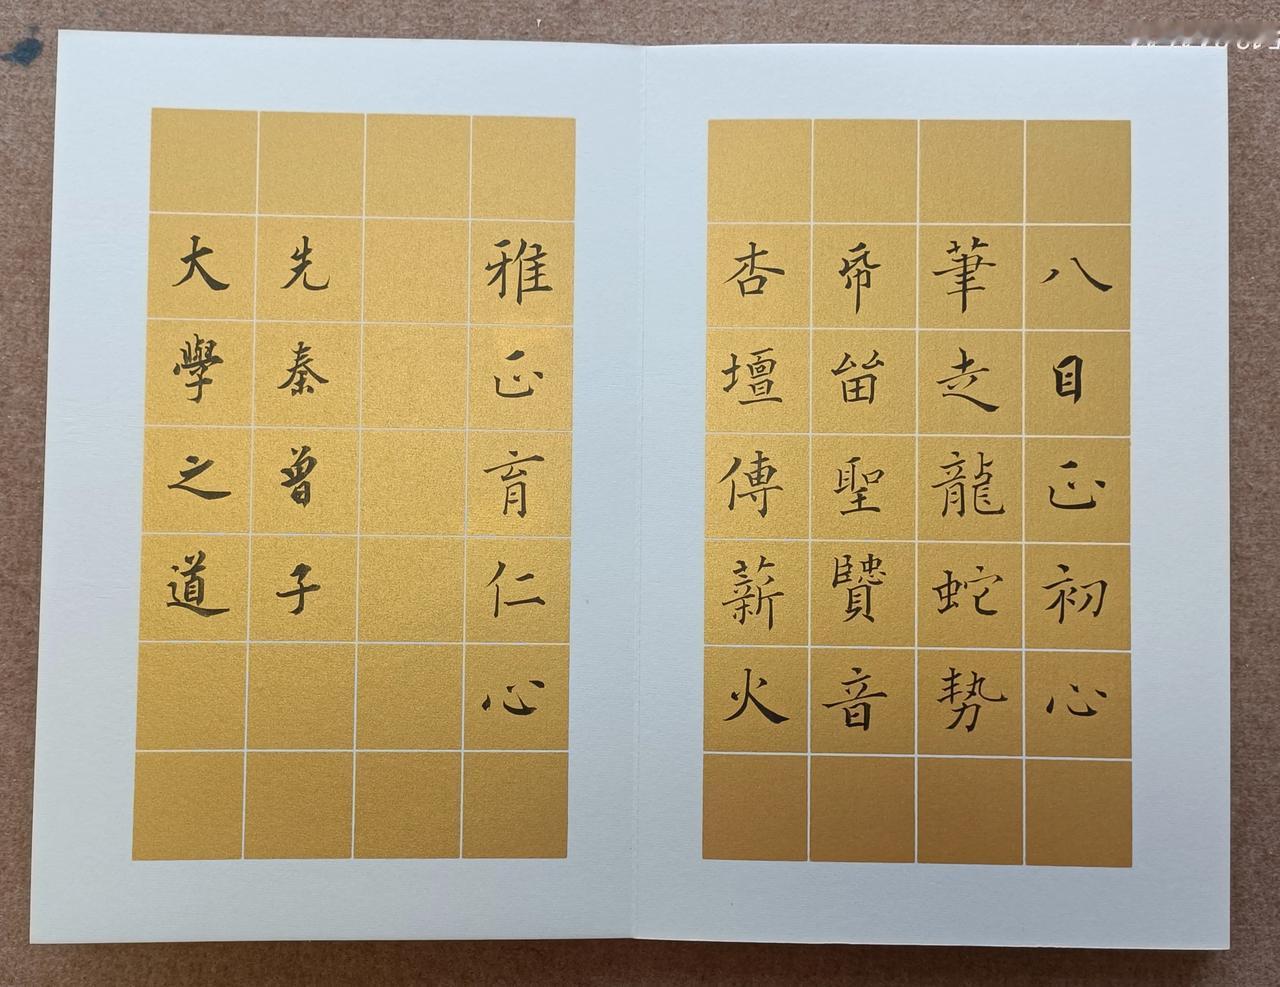 八目正初心
筆走龍蛇勢
帋留聖賢音
杏壇傳薪火
雅正育仁心
先秦曾子
大學之道